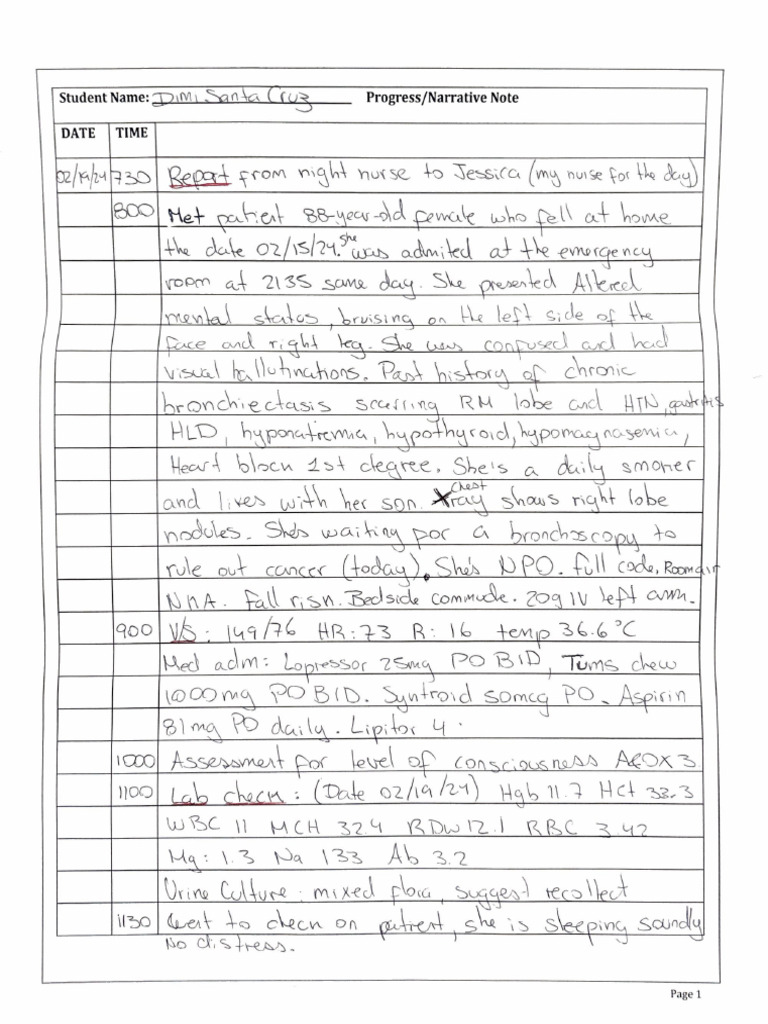 Student Name: Dimi Santa Cruz Progress/Narrative Note
DATE TIME
02/19/24 730 Report from night nurse to Jessica (my nurse for the day)
800 Met patient 88-year-old female who fell at home
the date 02/15/24. she was admited at the emergency
room at 2135 same day. She presented Altered
mental status, bruising on the left side of the
face and right leg. She was confused and had
visual hallutinations. Past history of chronic
bronchiectasis scarring RM lobe and HTN, gastritis
HLD, hyponatremia, hypothyroid, hypomagnasemia,
Heart block 1st degree. She's a daily smoker
and lives with her son. Chest Xray shows right lobe
nodules. She's waiting por a bronchoscopy to
rule out cancer (today). She's NPO. full code, Room air
NKA. Fall risk. Bedside commude. 20g IV left arm.
900 V/S: 149/76 HR: 73 R: 16 temp 36.6°C
Med adm: Lopressor 25mg PO BID, Tums chew
1000mg PO BID. Syntroid 50mcg PO. Aspirin
81mg PO daily. Lipitor 4.
1000 Assessment for level of consciousness A&OX3
1100 Lab check: (Date 02/19/24) Hgb 11.7 Hct 33.3
WBC 11 MCH 32.4 RDW 12.1 RBC 3.42
Mg: 1.3 Na 133 Ab 3.2
Urine Culture: mixed flora, suggest recollect
1130 Went to check on patient, she is sleeping soundly
No distress.
Page 1